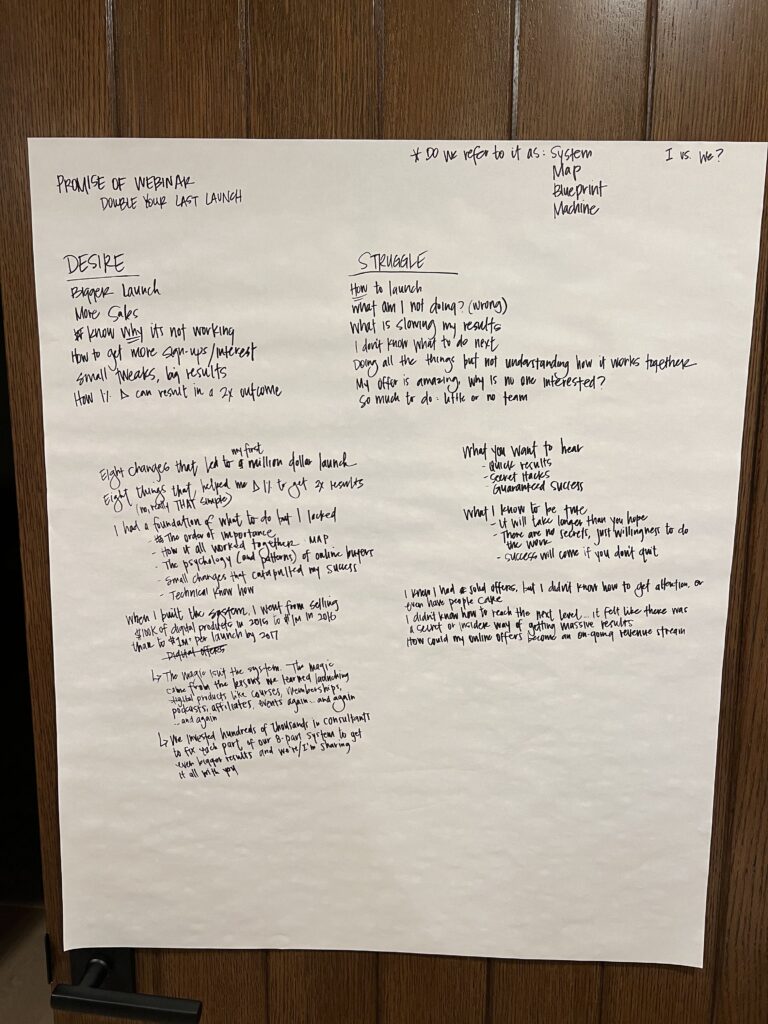 * DO WE refer to it as: System
Map
Blueprint
Machine
I vs. We?
PROMISE OF WEBINAR
DOUBLE YOUR LAST LAUNCH
DESIRE
Bigger Launch
More Sales
* know why its not working
How to get more sign-ups/interest
Small tweaks, big results
How 1% Δ can result in a 2x outcome
STRUGGLE
How to launch
What am I not doing? (wrong)
What is slowing my results
I don't know what to do next
Doing all the things but not understanding how it works together
My offer is amazing, why is no one interested?
So much to do: little or no team
my first
Eight changes that led to a million dollar launch
Eight things that helped me Δ 1% to get 2x results
(no, really THAT simple)
I had a foundation of what to do but I lacked
- * The order of importance
- How it all worked together MAP
- The psychology (and patterns) of online buyers
- Small changes that catapulted my success
- Technical know how
When I built the system, I went from selling
$100K of digital products in 2015 to $1M in 2016
than to $1M+ per launch by 2017
Digital offers
↳ The magic isn't the system. The magic
came from the lessons we learned launching
digital products like courses, memberships,
podcasts, affiliates, events again.. and again
... and again
↳ We invested hundreds of thousands in consultants
to fix each part of our 8-part system to get
even bigger results and we're/I'm sharing
it all with you
What you want to hear
- Quick results
- Secret Hacks
- Guaranteed success
What I know to be true
- It will take longer than you hope
- There are no secrets, just willingness to do
the work
- Success will come if you don't quit
I know I had solid offers, but I didn't know how to get attention, or
even have people care
I didn't know how to reach the next level... it felt like there was
a secret or insiders way of getting massive results
How could my online offers become an on-going revenue stream